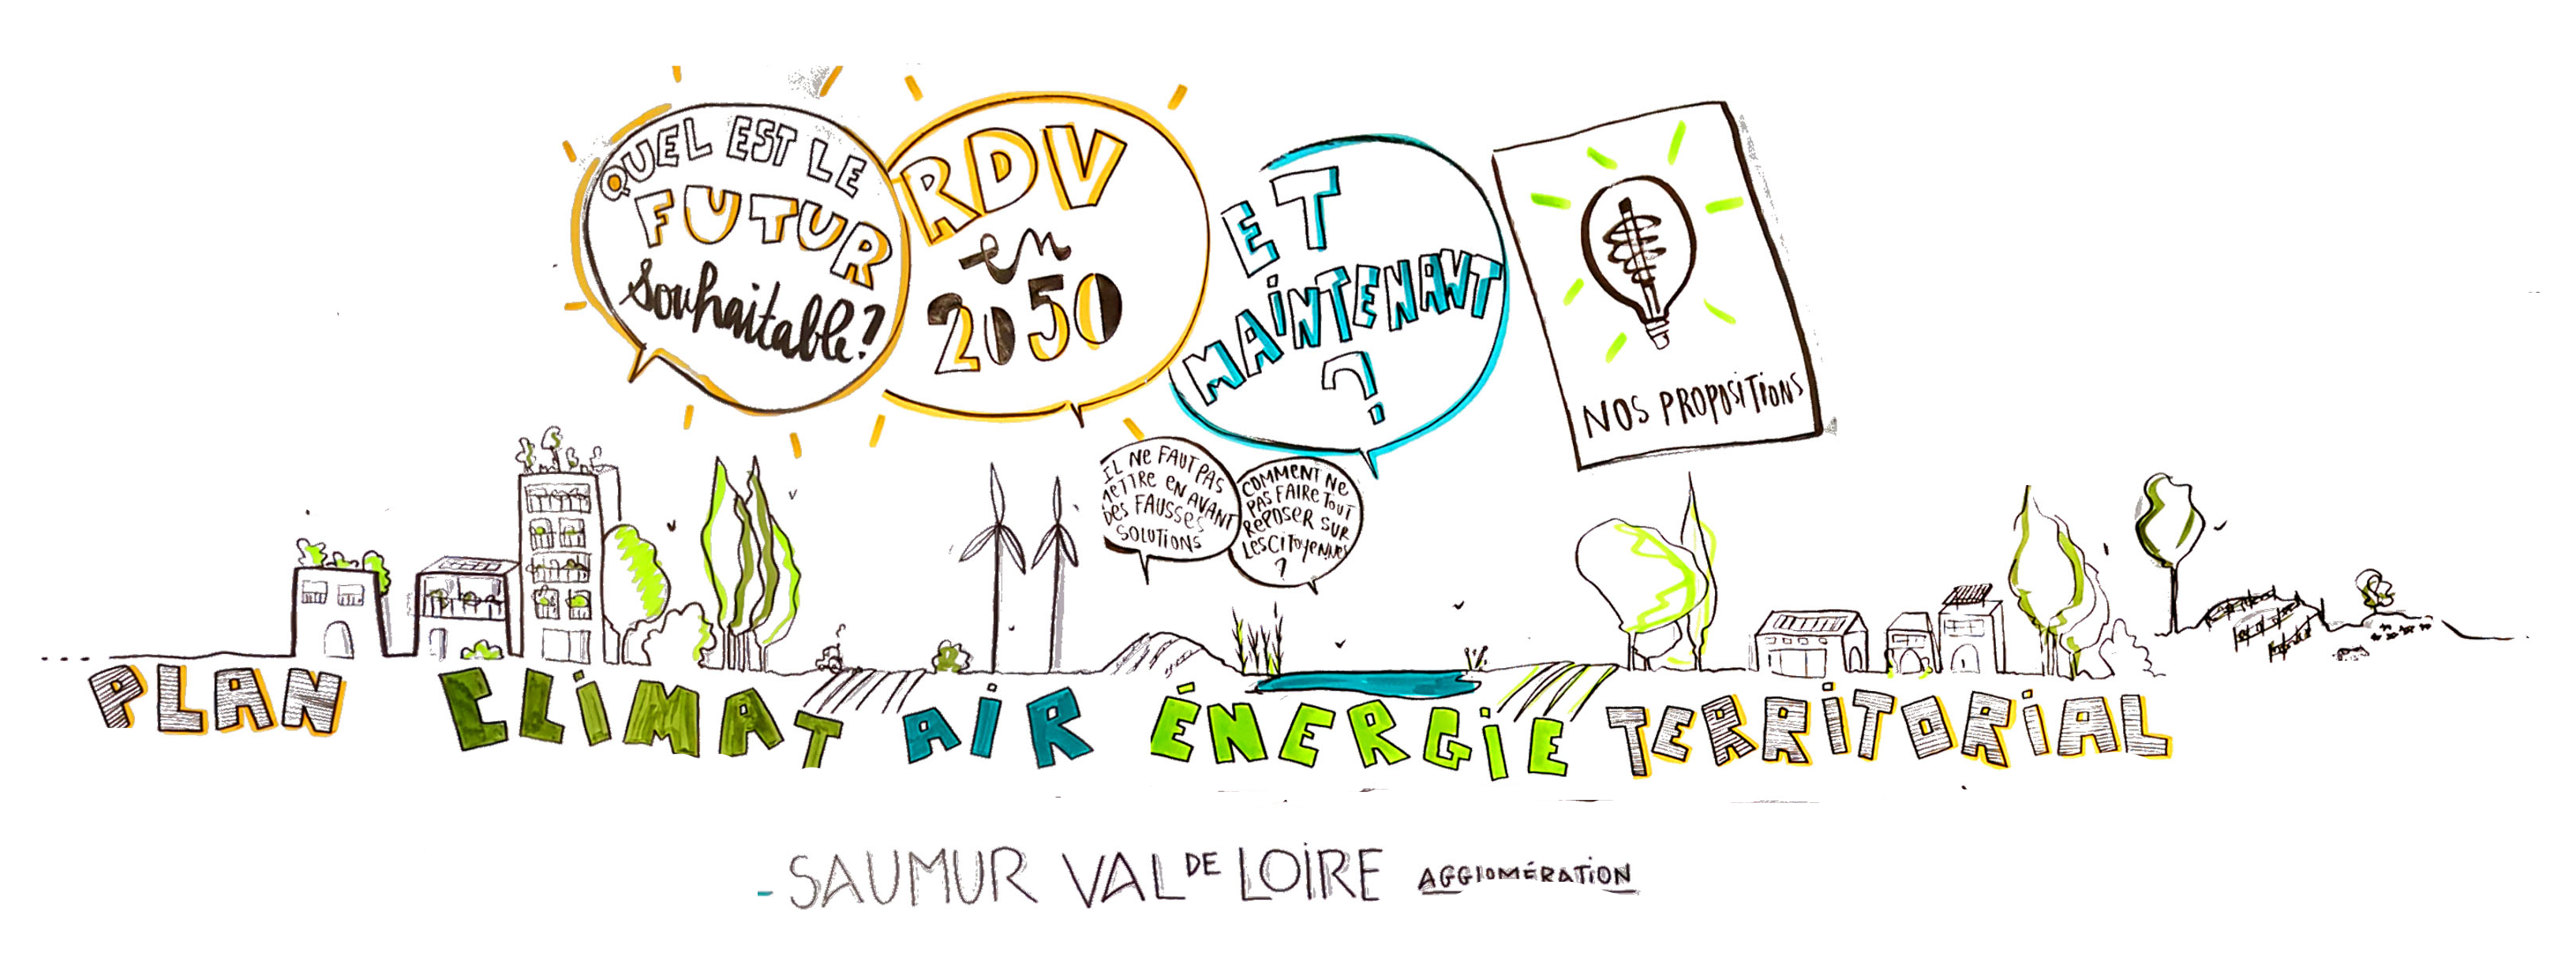 QUEL EST LE
FUTUR
souhaitable?
RDV
en
2050
ET
MAINTENANT
?
NOS PROPOSITIONS
IL NE FAUT PAS
METTRE EN AVANT
DES FAUSSES
SOLUTIONS
COMMENT NE
PAS FAIRE TOUT
REPOSER SUR
LES CITOYENNES
?
PLAN CLIMAT AIR ÉNERGIE TERRITORIAL
- SAUMUR VAL DE LOIRE AGGLOMÉRATION